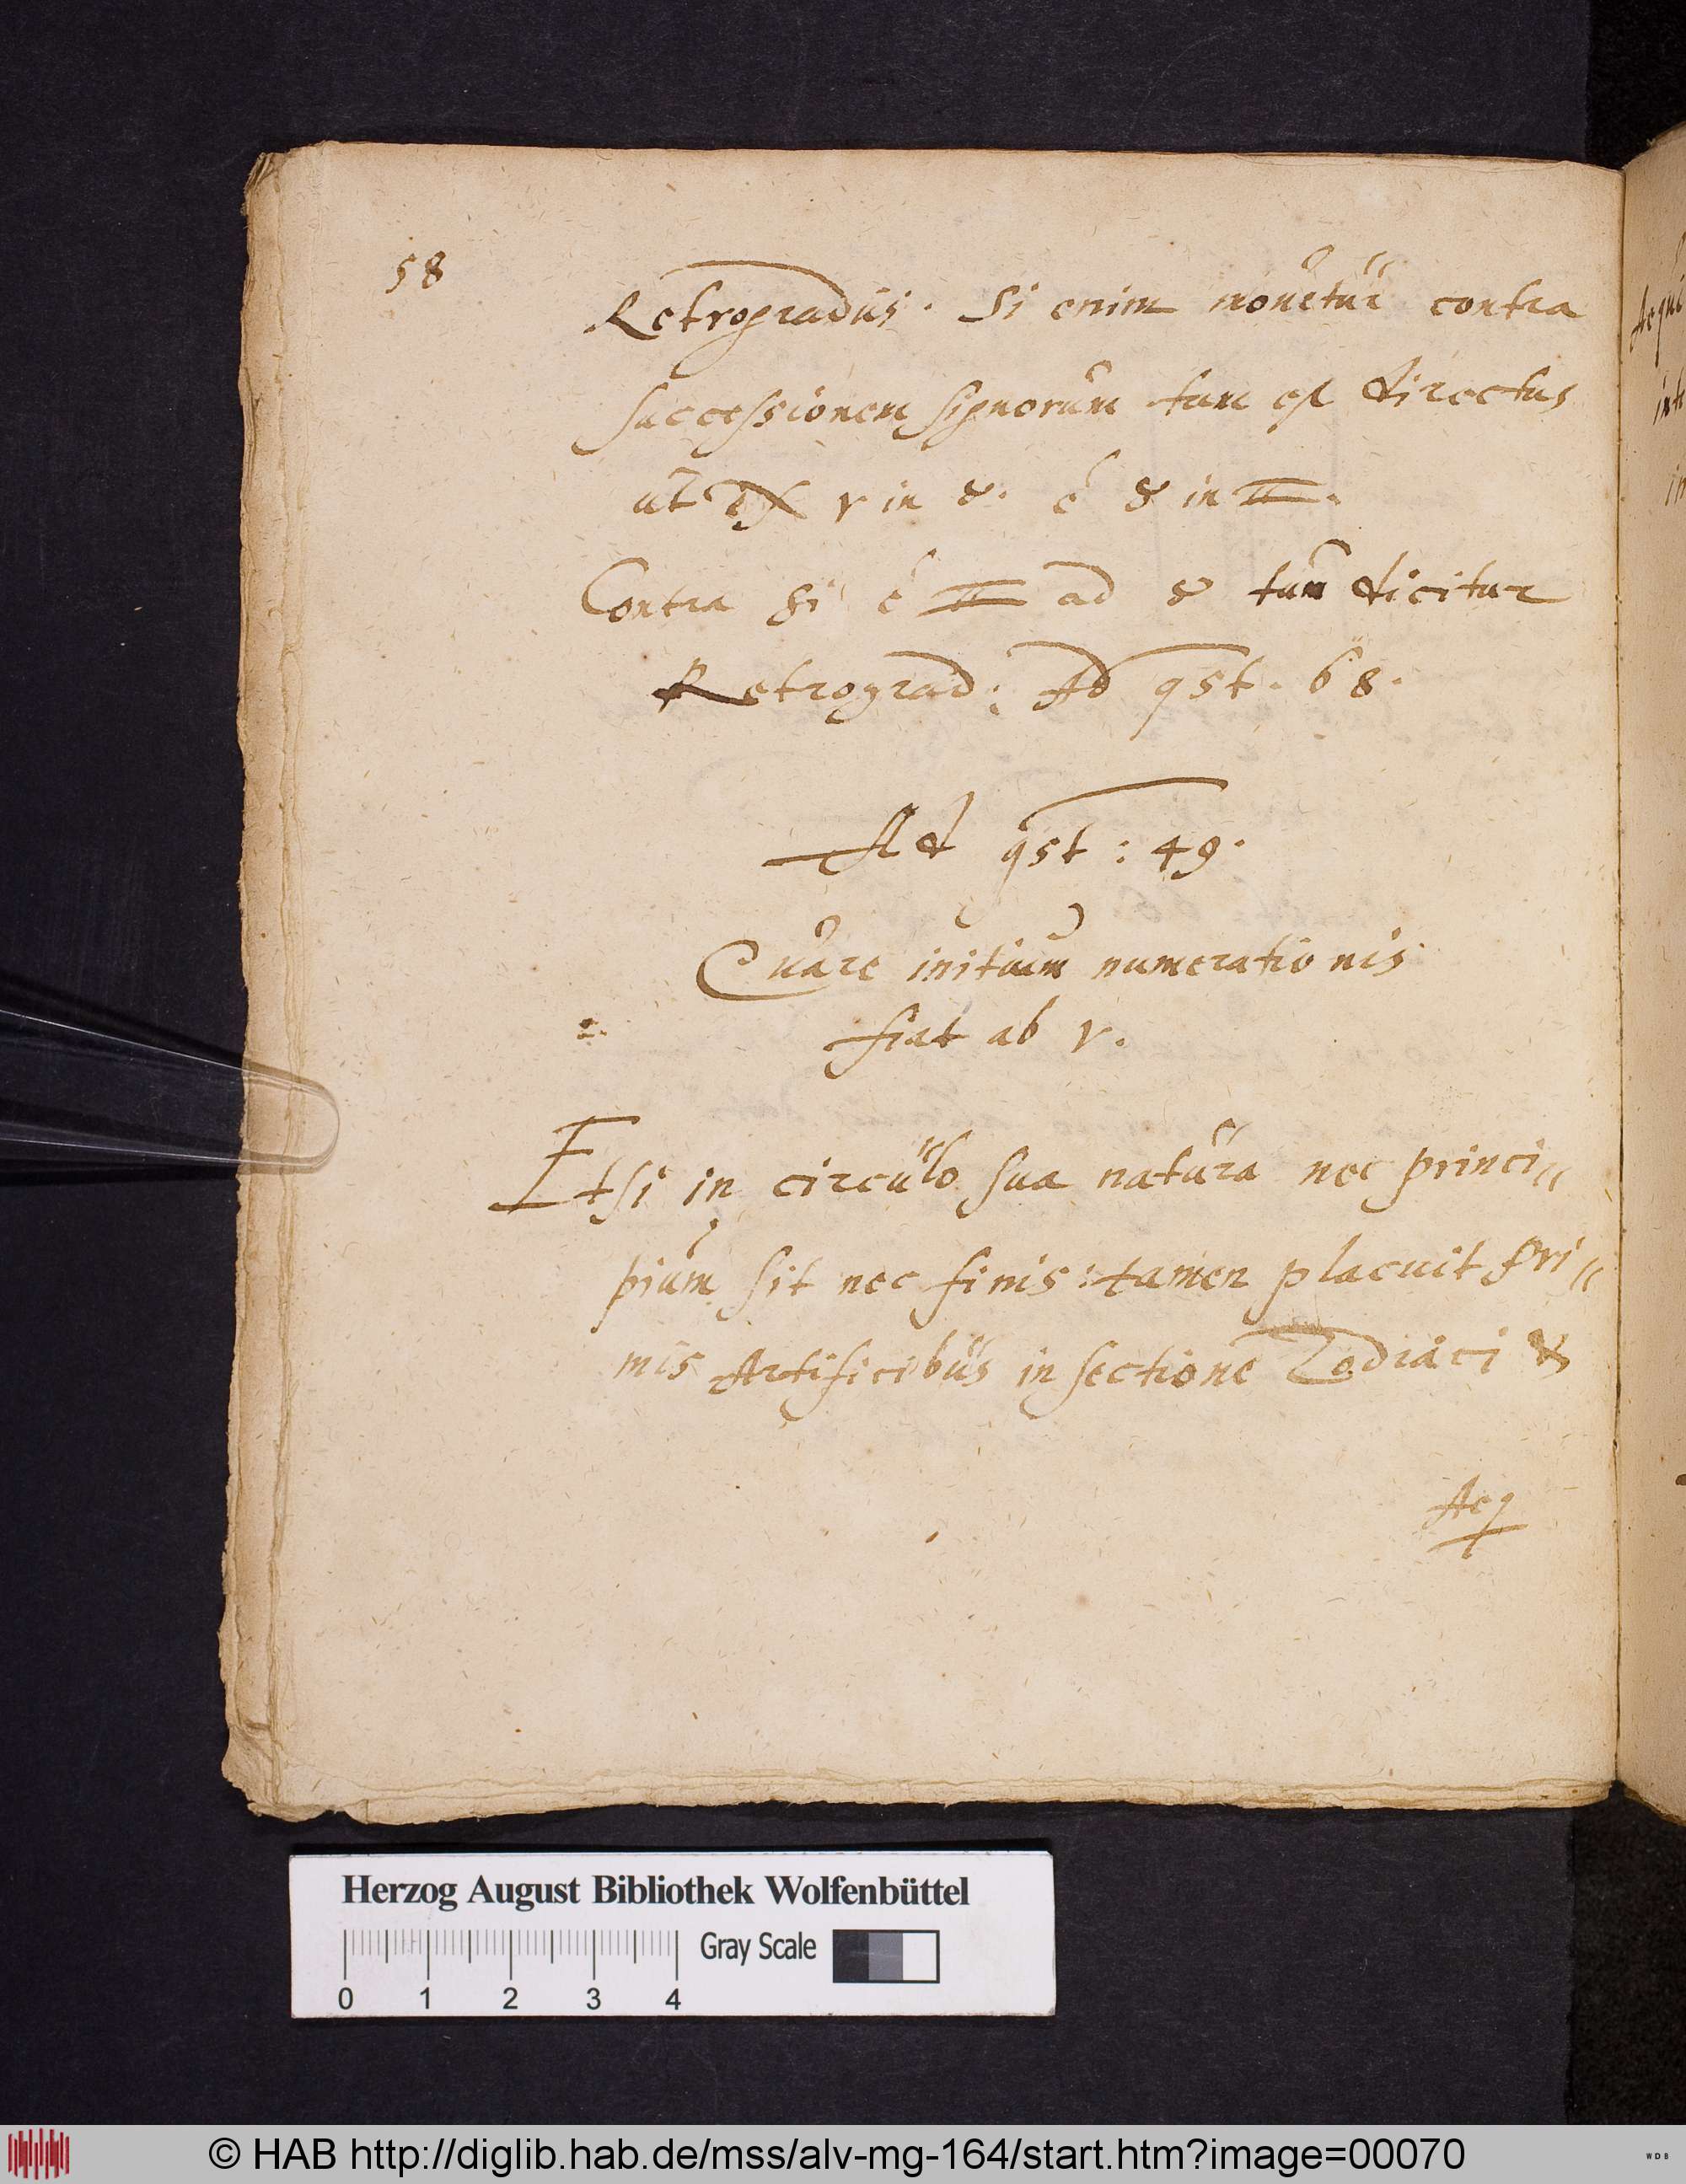 58
Retrogradus. Si enim mouetur contra
successionem signorum tum est directus
ut ex ♈ in ♉. è ♉ in ♊.
Contra si è ♊ ad ♉ tum dicitur
Retrograd: Ad qst. 68.
Ad qst: 49.
Quare initium numerationis
fiat ab ♈.
Etsi in circulo sua natura nec princi„
pium sit nec finis: tamen placuit pri„
mis Artificibus in sectione Zodiaci &
Aeq
Aequi
Herzog August Bibliothek Wolfenbüttel
Gray Scale
0 1 2 3 4
© HAB http://diglib.hab.de/mss/alv-mg-164/start.htm?image=00070
WDB